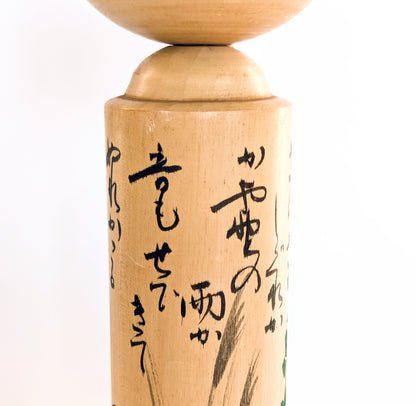 しぐれか
かや野の
雨か
音もせで
きて
ぬれかかる